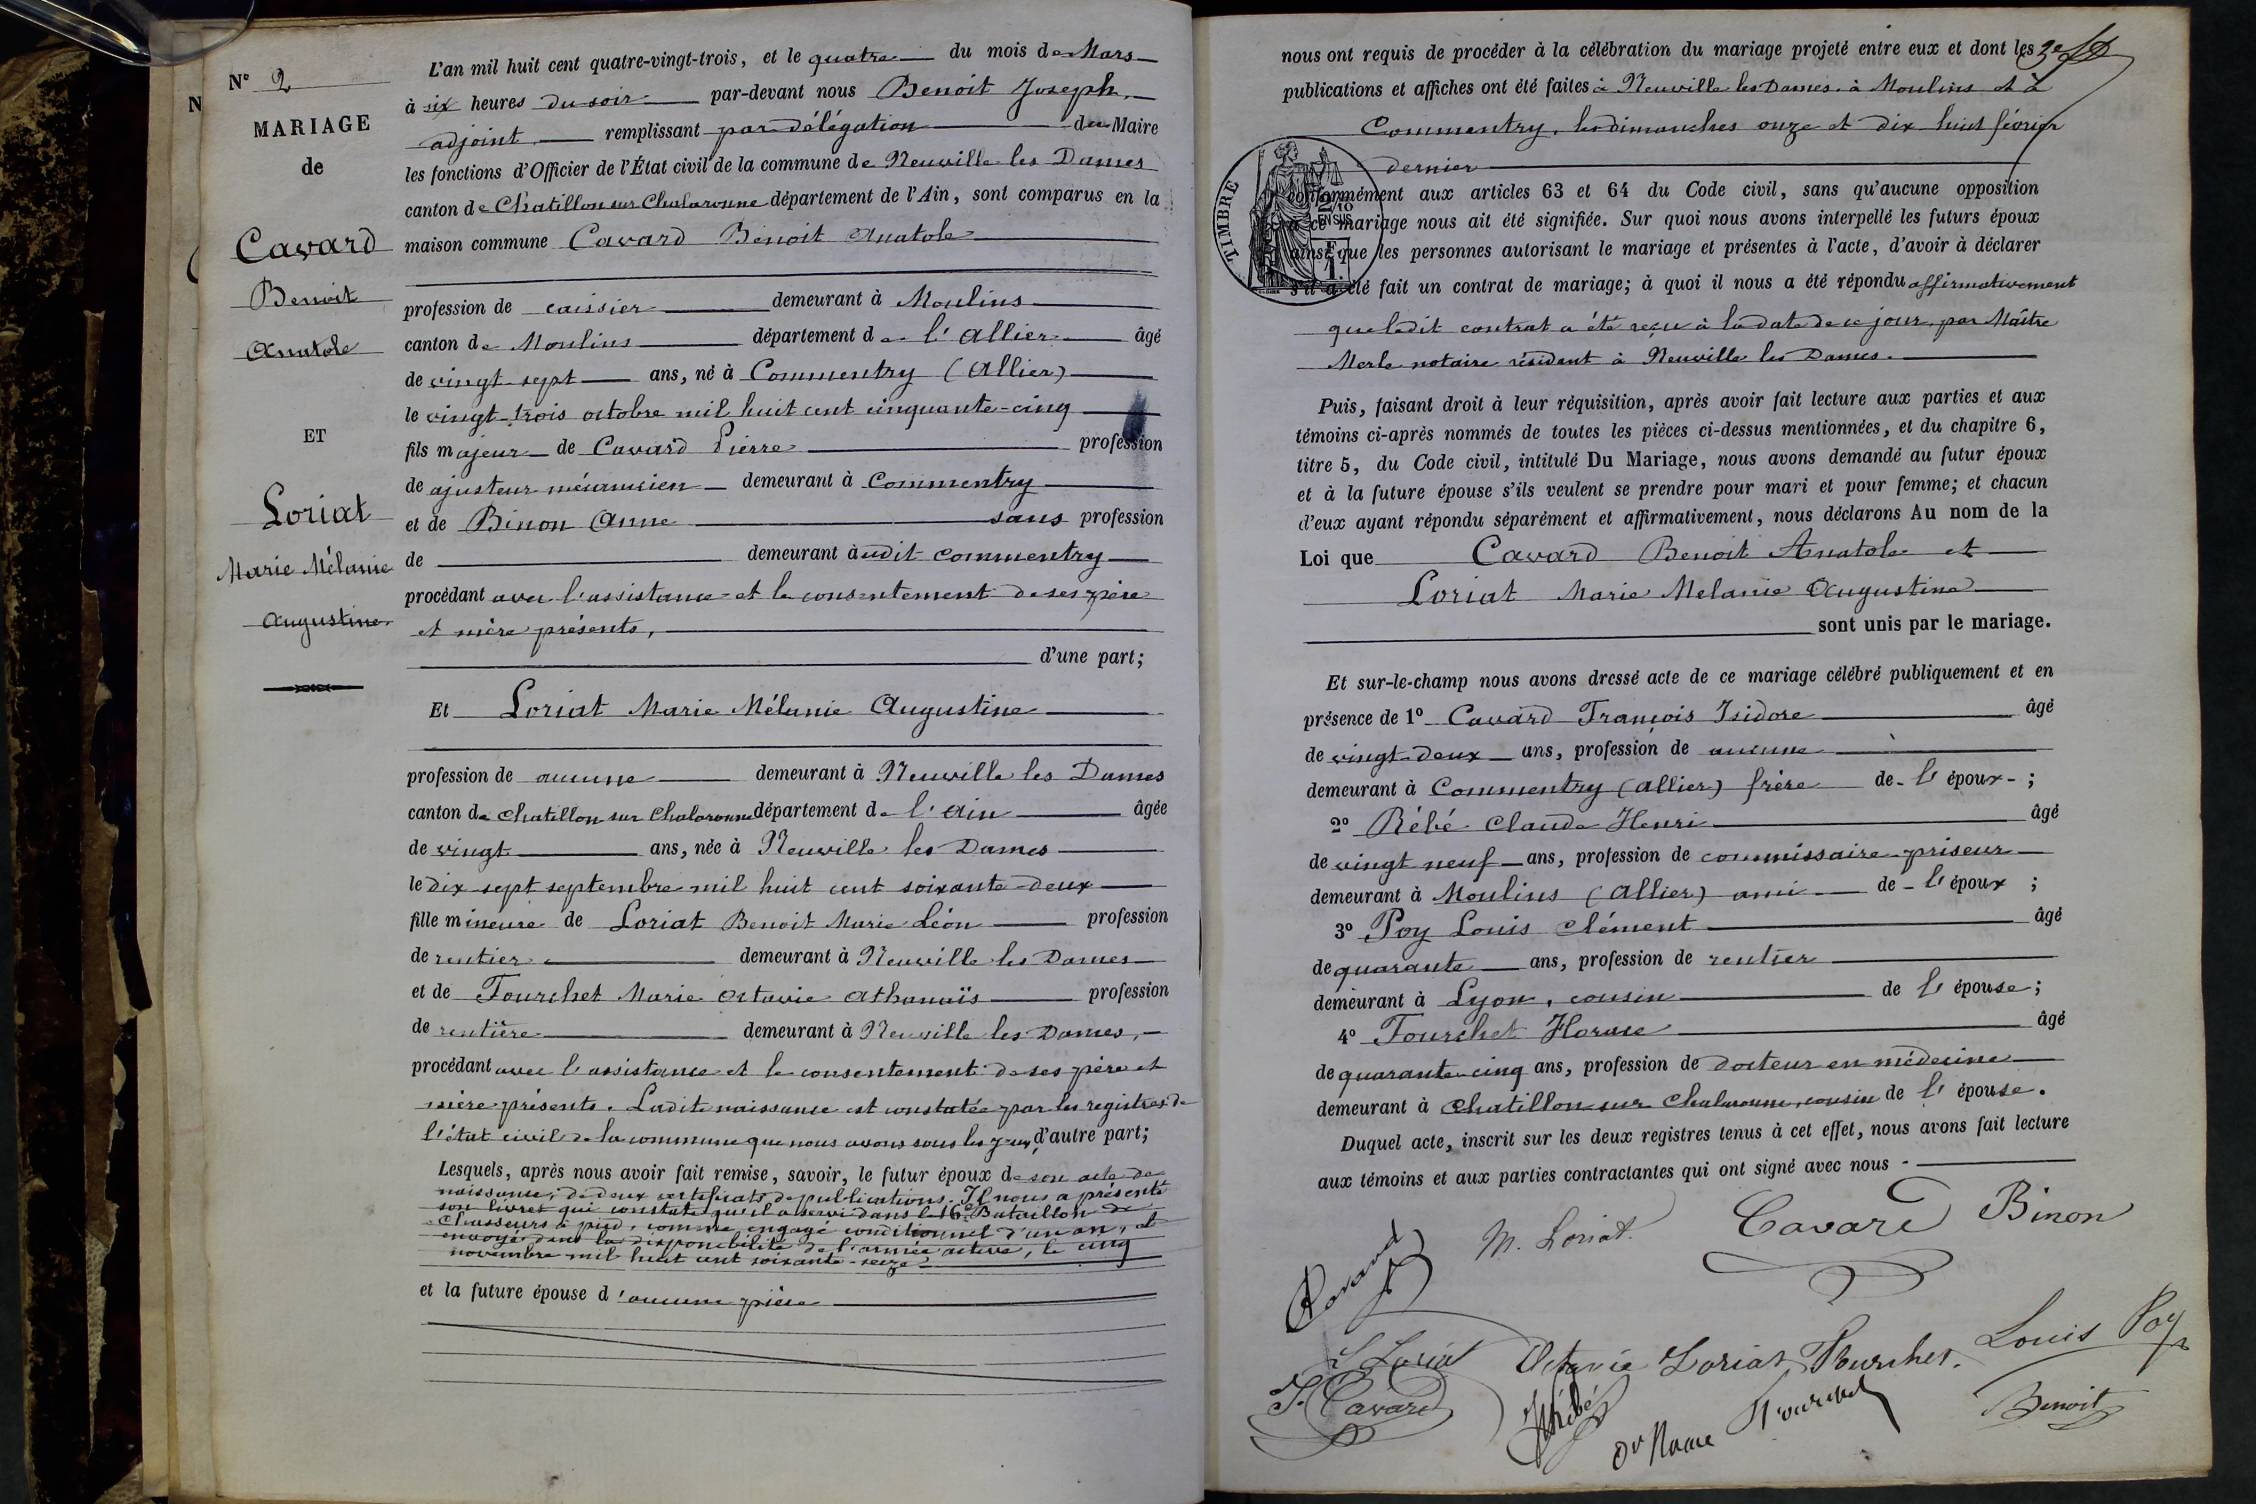 N° 2
MARIAGE
de
Cavard
Benoit
Anatole
ET
Loriat
Marie Mélanie
Augustine
L'an mil huit cent quatre-vingt-trois, et le quatre du mois de Mars
à six heures du soir par-devant nous Benoit Joseph,
adjoint, remplissant par délégation du Maire
les fonctions d'Officier de l'État civil de la commune de Neuville les Dames
canton de Chatillon sur Chalaronne département de l'Ain, sont comparus en la
maison commune Cavard Benoit Anatole
profession de caissier demeurant à Moulins
canton de Moulins département de l'Allier âgé
de vingt-sept ans, né à Commentry (Allier)
le vingt-trois octobre mil huit cent cinquante-cinq
fils majeur de Cavard Pierre profession
de ajusteur mécanicien demeurant à Commentry
et de Binon Anne sans profession
de demeurant audit Commentry
procédant avec l'assistance et le consentement de ses père
et mère présents,
d'une part;
Et Loriat Marie Mélanie Augustine
profession de aucune demeurant à Neuville les Dames
canton de Chatillon sur Chalaronne département de l'Ain âgée
de vingt ans, née à Neuville les Dames
le dix-sept septembre mil huit cent soixante-deux
fille mineure de Loriat Benoit Marie Léon profession
de rentier demeurant à Neuville les Dames
et de Fourchet Marie Octavie Athanaïs profession
de rentière demeurant à Neuville les Dames,
procédant avec l'assistance et le consentement de ses père et
mère présents. Ladite naissance est constatée par les registres de
l'état civil de la commune que nous avons sous les yeux, d'autre part;
Lesquels, après nous avoir fait remise, savoir, le futur époux de son acte de
naissance, de deux certificats de publications. Il nous a présenté
son livret qui constate qu'il a servi dans le 16e Bataillon de
Chasseurs à pied, comme engagé conditionnel d'un an, et
envoyé dans la disponibilité de l'armée active, le cinq
novembre mil huit cent soixante-seize
et la future épouse d'aucune pièce
nous ont requis de procéder à la célébration du mariage projeté entre eux et dont les 2
publications et affiches ont été faites à Neuville les Dames, à Moulins et à
Commentry, les dimanches onze et dix huit février
dernier
TIMBRE
2/10
EN SUS
F.
1.
conformément aux articles 63 et 64 du Code civil, sans qu'aucune opposition
à ce mariage nous ait été signifiée. Sur quoi nous avons interpellé les futurs époux
ainsi que les personnes autorisant le mariage et présentes à l'acte, d'avoir à déclarer
s'il a été fait un contrat de mariage; à quoi il nous a été répondu affirmativement
que ledit contrat a été reçu à la date de ce jour, par Maître
Merle notaire résidant à Neuville les Dames.
Puis, faisant droit à leur réquisition, après avoir fait lecture aux parties et aux
témoins ci-après nommés de toutes les pièces ci-dessus mentionnées, et du chapitre 6,
titre 5, du Code civil, intitulé Du Mariage, nous avons demandé au futur époux
et à la future épouse s'ils veulent se prendre pour mari et pour femme; et chacun
d'eux ayant répondu séparément et affirmativement, nous déclarons Au nom de la
Loi que Cavard Benoit Anatole et
Loriat Marie Melanie Augustine
sont unis par le mariage.
Et sur-le-champ nous avons dressé acte de ce mariage célébré publiquement et en
présence de 1° Cavard François Isidore âgé
de vingt-deux ans, profession de aucune
demeurant à Commentry (Allier) frère de l'époux ;
2° Rébé Claude Henri âgé
de vingt neuf ans, profession de commissaire-priseur
demeurant à Moulins (Allier) ami de l'époux ;
3° Poy Louis Clément âgé
de quarante ans, profession de rentier
demeurant à Lyon, cousin de l'épouse;
4° Fourchet Horace âgé
de quarante-cinq ans, profession de docteur en médecine
demeurant à Chatillon-sur Chalaronne, cousin de l'épouse.
Duquel acte, inscrit sur les deux registres tenus à cet effet, nous avons fait lecture
aux témoins et aux parties contractantes qui ont signé avec nous
Cavard
M. Loriat
Cavard
Binon
L Loriat
Octavie Loriat Fourchet.
Louis Poy
F. Cavard
HRébé
Dr Horace Fourchet
Benoit